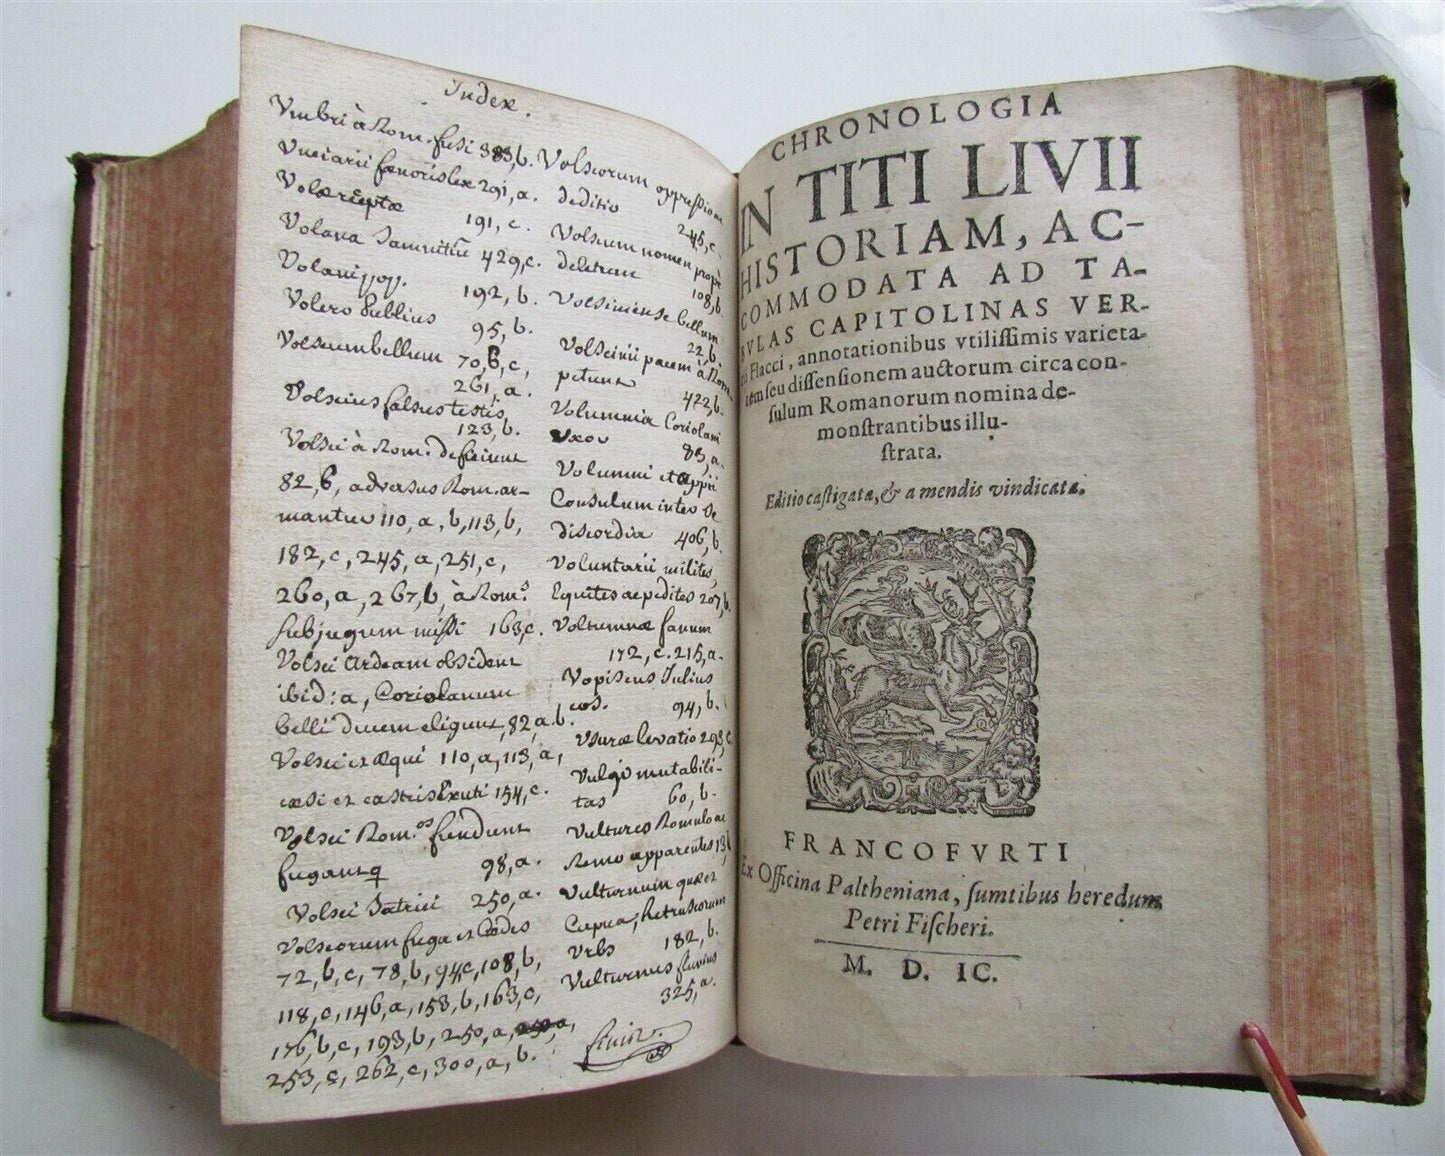 Index.
Vmbri à Rom. fusi 383, b.
Vnciarii fœnoris lex 291, a.
Volæ receptæ
191, c.
Volana Samnitiū 429, c.
Volani
192, b.
Volero Publius
95, b.
Volscum bellum 70, b, c,
261, a.
Volscius falsus testis
123, b.
Volsci à Rom. deficiunt
82, b, adversus Rom. ar-
mantur 110, a, b, 113, b,
182, c, 245, a, 251, c,
260, a, 267, b, à Rom.s
subjugum missi 163, c.
Volsci Ardeam obsident
ibid: a, Coriolanum
belli ducem eligunt, 82, a. b.
Volsci et Æqui 110, a, 113, a,
cæsi et castris Exuti 154, c.
Volsci Rom.os fundunt
fugantq
98, a.
Volsci Satrici 250, a.
Volscorum fuga et Cædes
72, b, c, 78, b, 94, c, 108, b,
118, c, 146, a, 153, b, 163, c,
176, b, c, 193, b, 250, a,
253, c, 262, c, 300, a, b.
Volscorum oppressio et
deditio
245, c.
Volscum nomen propè
deletum
108, b.
Volsiniense bellum
22, b.
Volscinii pacem à Rom.
petunt
422, b.
Volumnia Coriolani
Vxor
83, a.
Volumni et Appii
Consulum inter se
discordia 406, b.
Voluntarii milites,
Equites ac pedites 207, b.
Voltumnæ fanum
172, c. 215, a.
Vopiscus Julius
cos.
94, b.
Vsuræ levatio 293, c.
Vulgi mutabili-
tas
60, b.
Vultures Romulo ac
Remo apparentes 13, b
Vulturnum quæ et
Capua, Hetruscorum
Vrbs
182, b.
Vulturnus fluvius
325, a.
finis.
CHRONOLOGIA
IN TITI LIVII
HISTORIAM, AC-
COMMODATA AD TA-
BVLAS CAPITOLINAS VER-
rii Flacci, annotationibus vtilissimis varieta-
tem seu dissensionem auctorum circa con-
sulum Romanorum nomina de-
monstrantibus illu-
strata.
Editio castigata, & a mendis vindicata.
FRANCOFVRTI
Ex Officina Paltheniana, sumtibus heredum
Petri Fischeri.
M. D. IC.